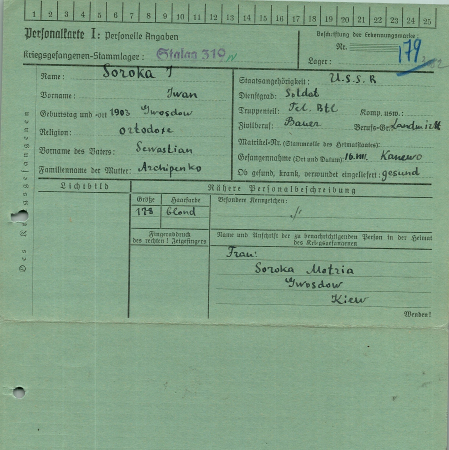 1 2 3 4 5 6 7 8 9 10 11 12 13 14 15 16 17 18 19 20 21 22 23 24 25
Personalkarte I: Personelle Angaben
Kriegsgefangenen-Stammlager: Stalag 319
Beschriftung der Erkennungsmarke
Nr. 179
Lager:
Des Kriegsgefangenen
Name: Soroka I
Vorname: Iwan
Geburtstag und -ort 1903 Gwosdow
Religion: ortodose
Vorname des Vaters: Sewastian
Familienname der Mutter: Archipenko
Staatsangehörigkeit: U.S.S.R
Dienstgrad: Soldat
Truppenteil: Tel. Btl Komp. usw.:
Zivilberuf: Bauer Berufs-Gr.:
Matrikel-Nr. (Stammrolle des Heimatstaates):
Gefangennahme (Ort und Datum) 16.VIII. Kanewo
Ob gesund, krank, verwundet eingeliefert: gesund
Lichtbild
Nähere Personalbeschreibung
Größe Haarfarbe Besondere Kennzeichen:
178 blond ./.
Fingerabdruck
des rechten! Zeigefingers
Name und Anschrift der zu benachrichtigenden Person in der Heimat
des Kriegsgefangenen
Frau:
Soroka Motria
Gwosdow
Kiew
Wenden!